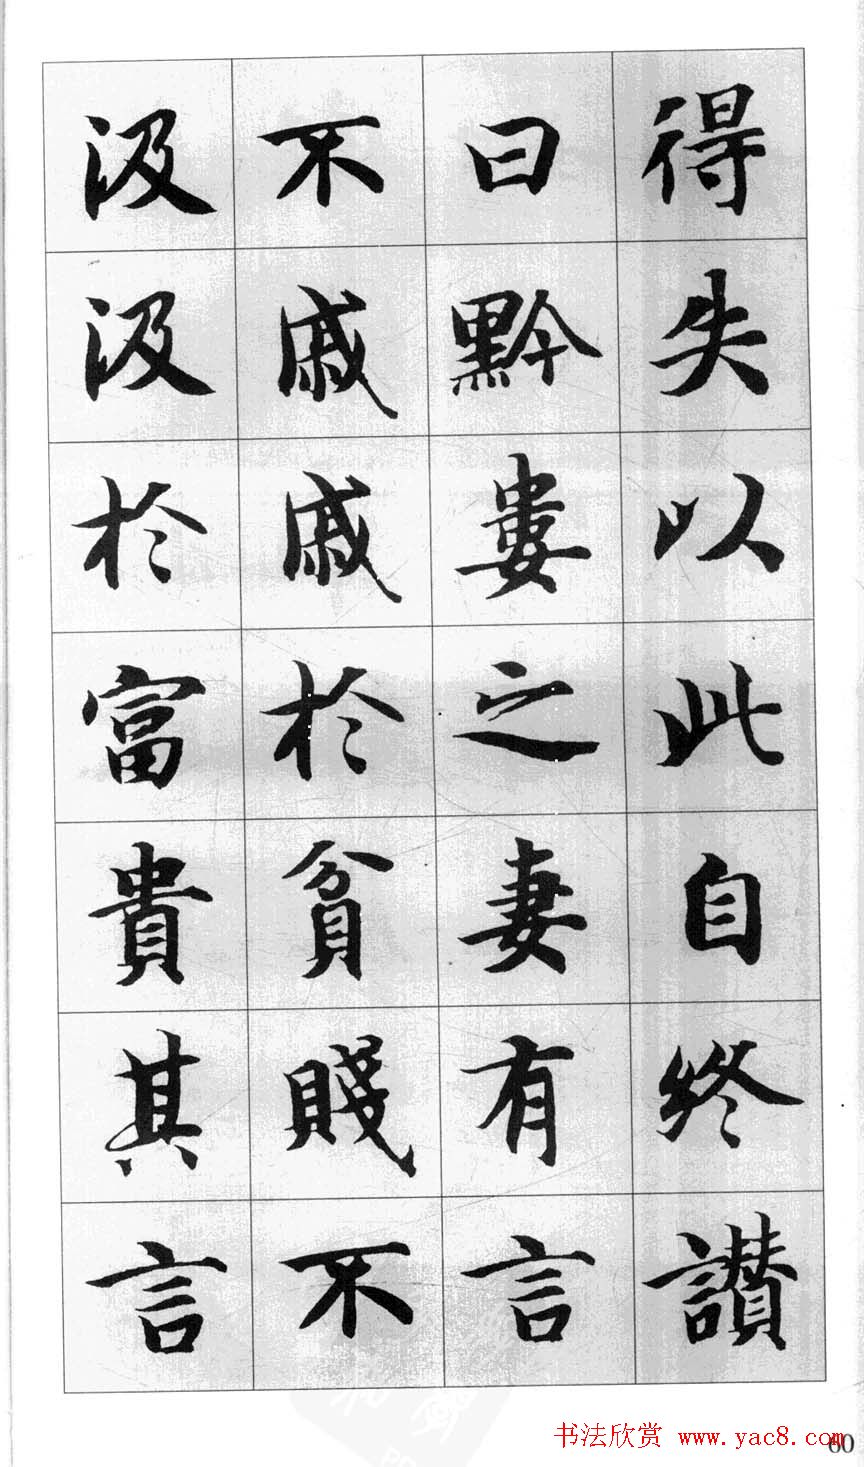 得失以此自終讃
曰黔婁之妻有言
不戚戚於貧賤不
汲汲於富貴其言
书法欣赏 www.yac8.com
60